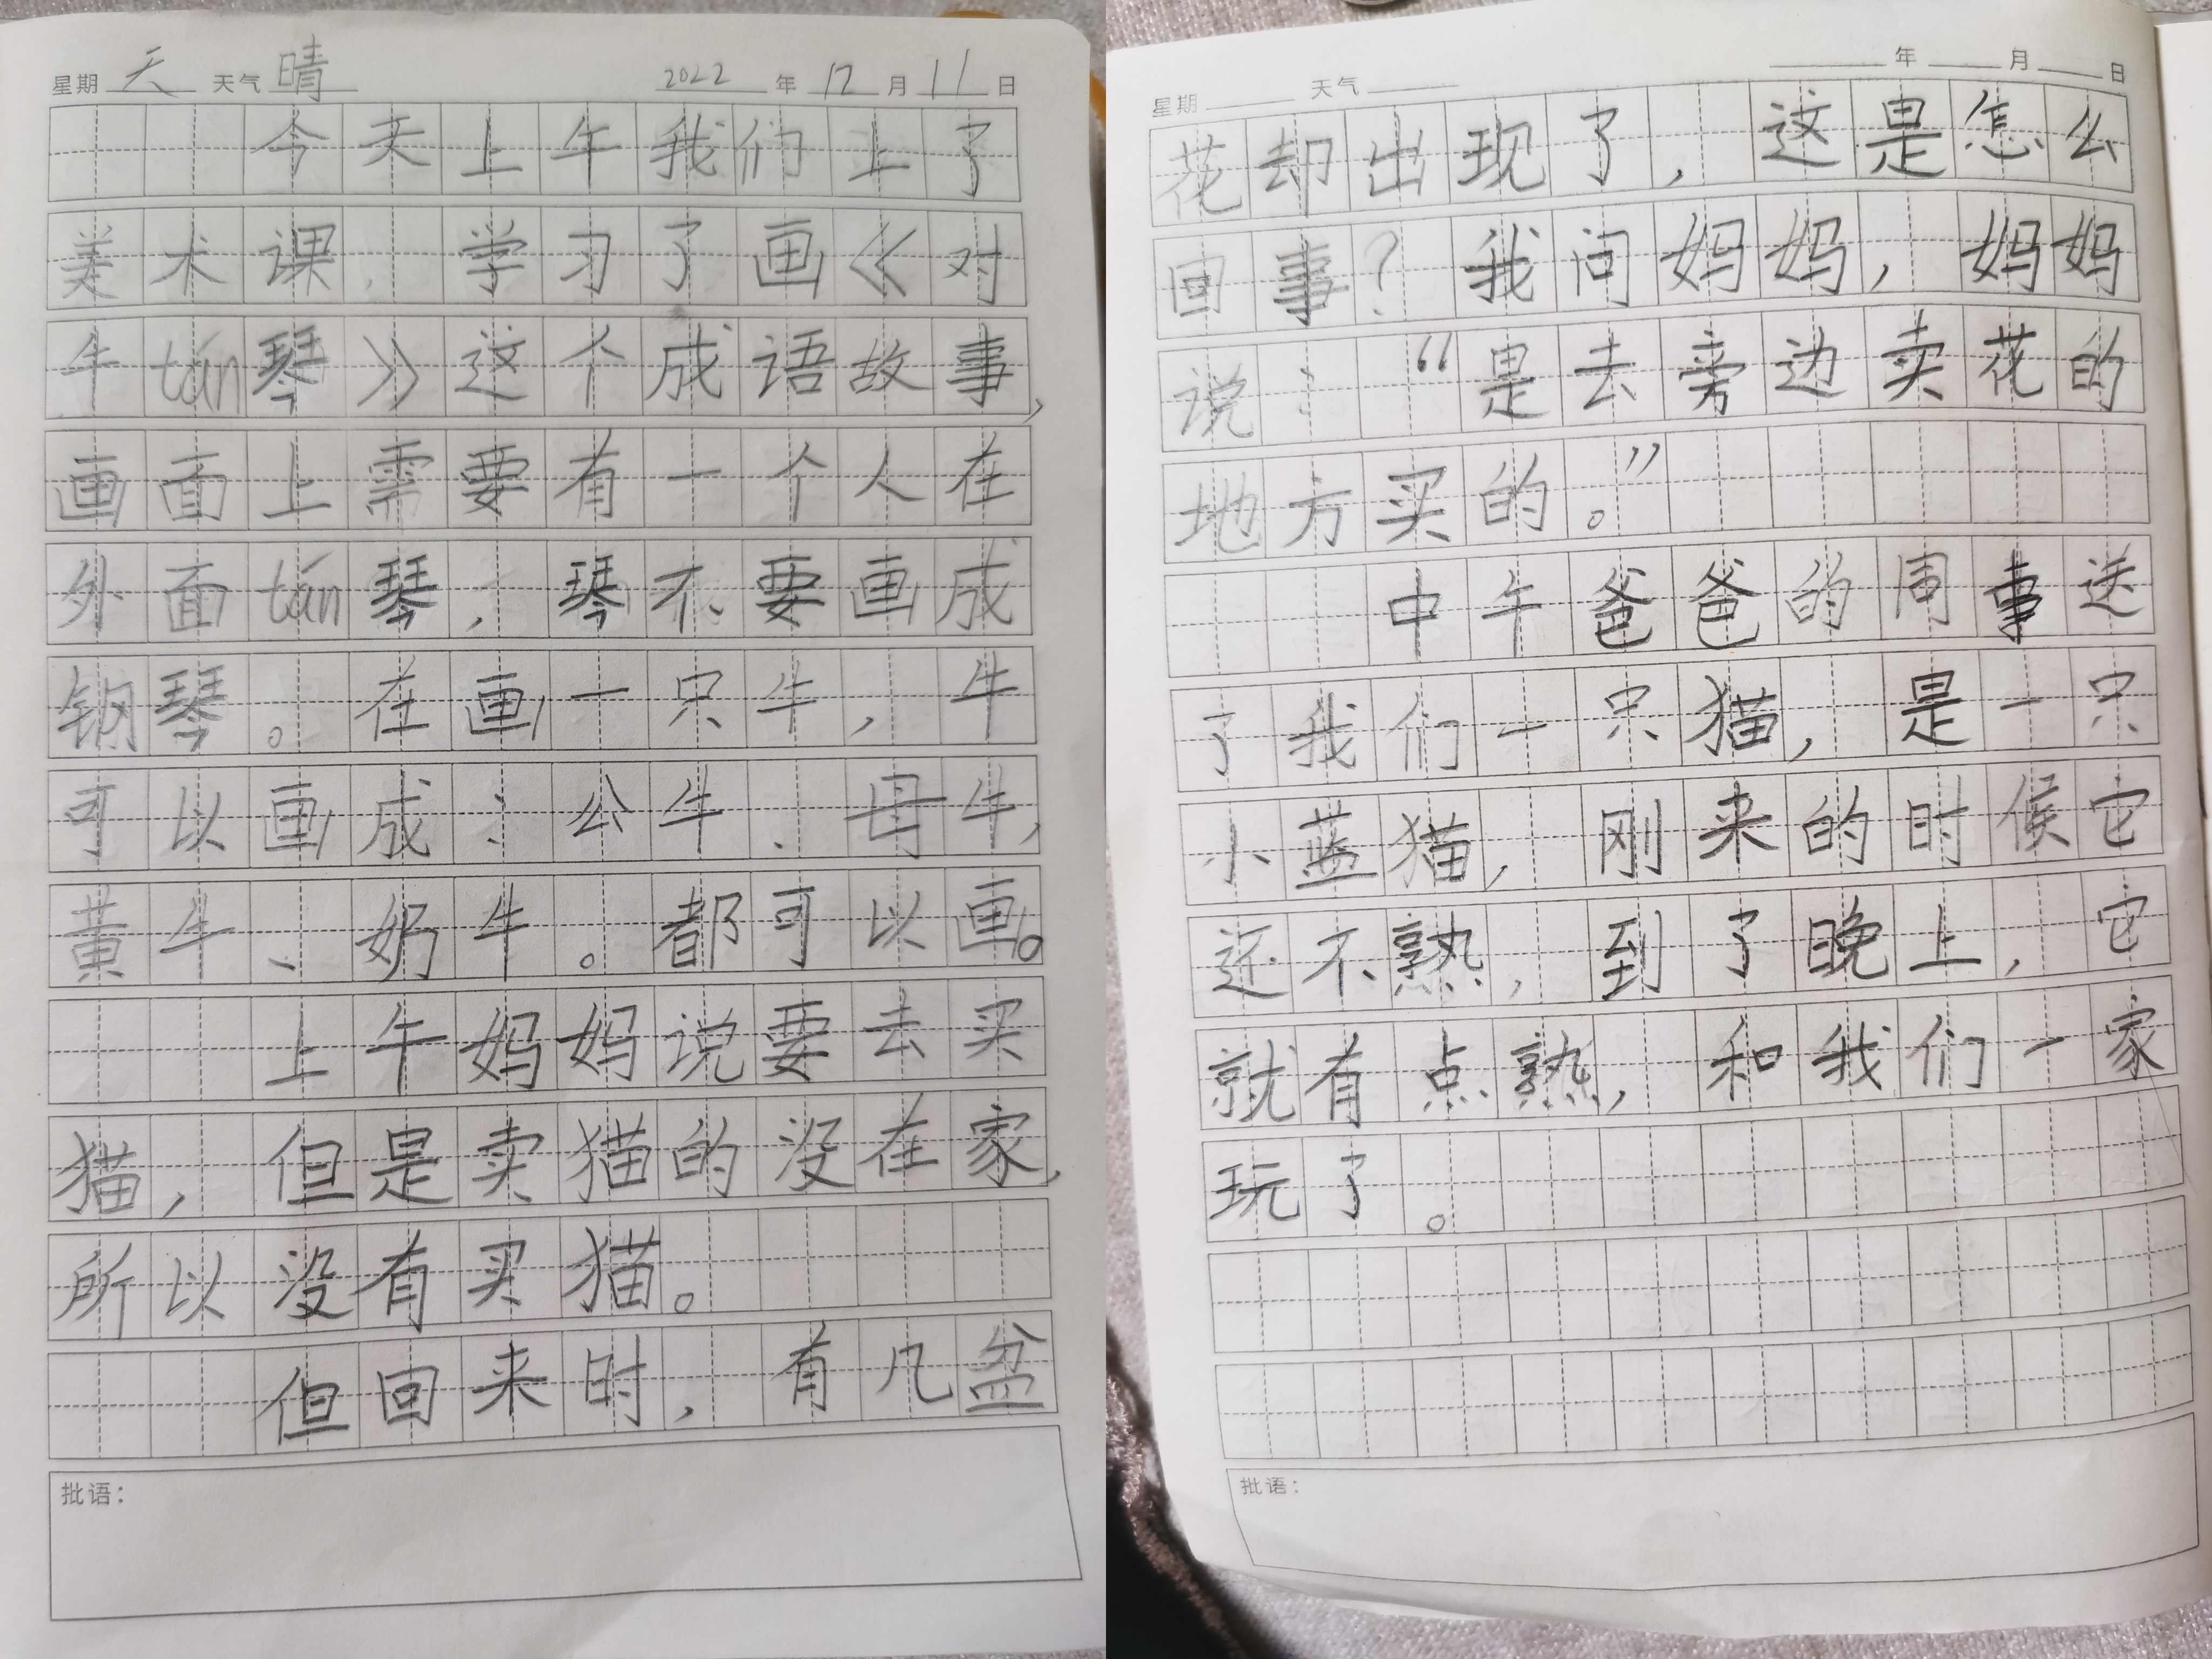 星期 天 天气 晴 2022 年 12 月 11 日
今天上午我们上了
美术课，学习了画《对
牛tán琴》这个成语故事，
画面上需要有一个人在
外面tán琴，琴不要画成
钢琴。在画一只牛，牛
可以画成：公牛、母牛，
黄牛、奶牛。都可以画。
上午妈妈说要去买
猫，但是卖猫的没在家，
所以没有买猫。
但回来时，有几盆
批语：
星期 天气 年 月 日
花却出现了，这是怎么
回事？我问妈妈，妈妈
说：“是去旁边卖花的
地方买的。”
中午爸爸的周事送
了我们一只猫，是一只
小蓝猫，刚来的时候它
还不熟，到了晚上，它
就有点熟，和我们一家
玩了。
批语：